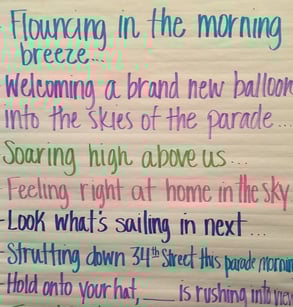 Flouncing in the morning
breeze...
Welcoming a brand new balloon
into the skies of the parade...
Soaring high above us...
Feeling right at home in the sky
-Look what's sailing in next...
-Strutting down 34th Street this parade mornin
-Hold onto your hat, ___ is rushing into view